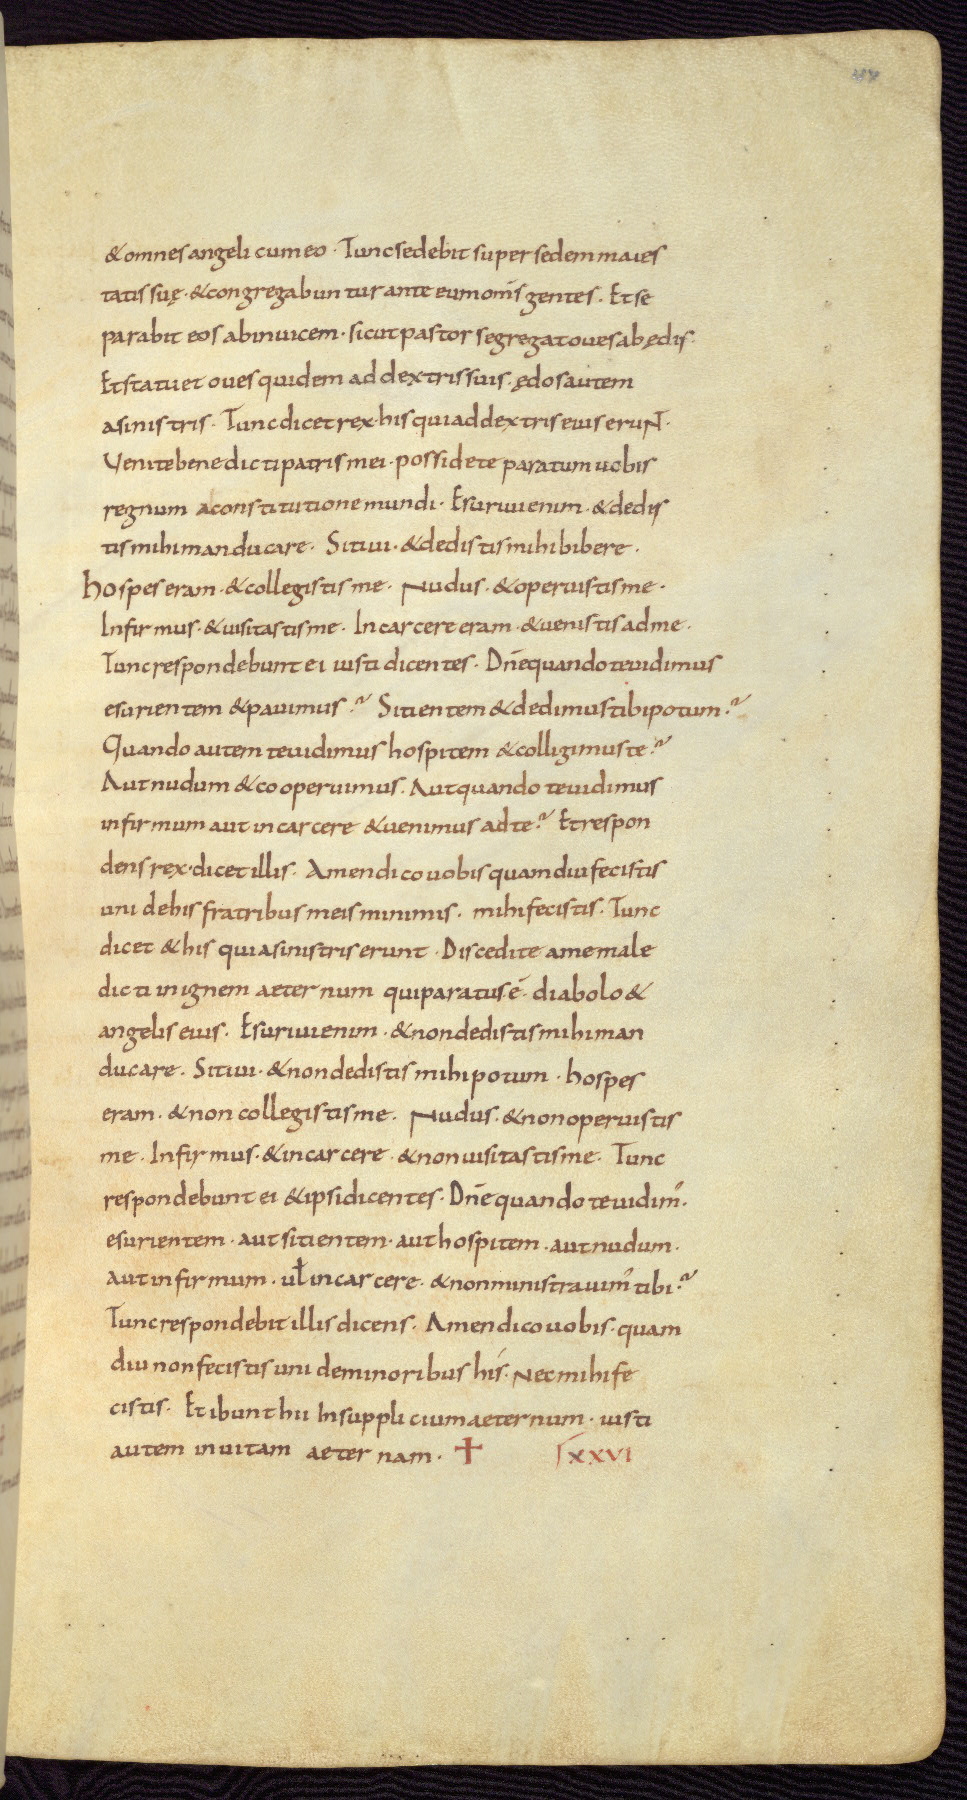 & omnes angeli cum eo · Tunc sedebit super sedem maies
tatis suę · & congregabuntur ante eum om̄s gentes · Et se
parabit eos abinuicem · sicut pastor segregat oues ab ędis ·
Et statuet oues quidem ad dextris suis · ędos autem
a sinistris · Tunc dicet rex · his qui ad dextris eius erunt ·
Uenite benedicti patris mei · possidete paratum uobis
regnum a constitutione mundi · Esuriui enim · & dedis
tis mihi manducare · Sitiui · & dedistis mihi bibere ·
hospes eram · & collegistis me · Nudus · & operuistis me ·
Infirmus · & uisitastis me · In carcere eram · & uenistis ad me ·
Tunc respondebunt ei iusti dicentes · Dn̄e quando te uidimus
esurientem & pauimus? Sitientem & dedimus tibi potum?
Quando autem te uidimus hospitem & colligimus te?
Aut nudum & cooperuimus · Aut quando te uidimus
infirmum aut in carcere & uenimus ad te? Et respon
dens rex · dicet illis · Amen dico uobis quamdiu fecistis
uni de his fratribus meis minimis · mihi fecistis · Tunc
dicet & his qui a sinistris erunt · Discedite a me male
dicti in ignem aeternum qui paratus ē · diabolo &
angelis eius · Esuriui enim · & non dedistis mihi man
ducare · Sitiui · & non dedistis mihi potum · hospes
eram · & non collegistis me · Nudus · & non operuistis
me · Infirmus · & in carcere · & non uisitastis me · Tunc
respondebunt ei & ipsi dicentes · Dn̄e quando te uidim' ·
esurientem · aut sitientem · aut hospitem · aut nudum ·
aut infirmum · ul̄ in carcere · & non ministrauim' tibi?
Tunc respondebit illis dicens · Amen dico uobis · quam
diu non fecistis uni de minoribus his · Nec mihi fe
cistis · Et ibunt hii in supplicium aeternum · iusti
autem in uitam aeternam · ✝ ſxxvi